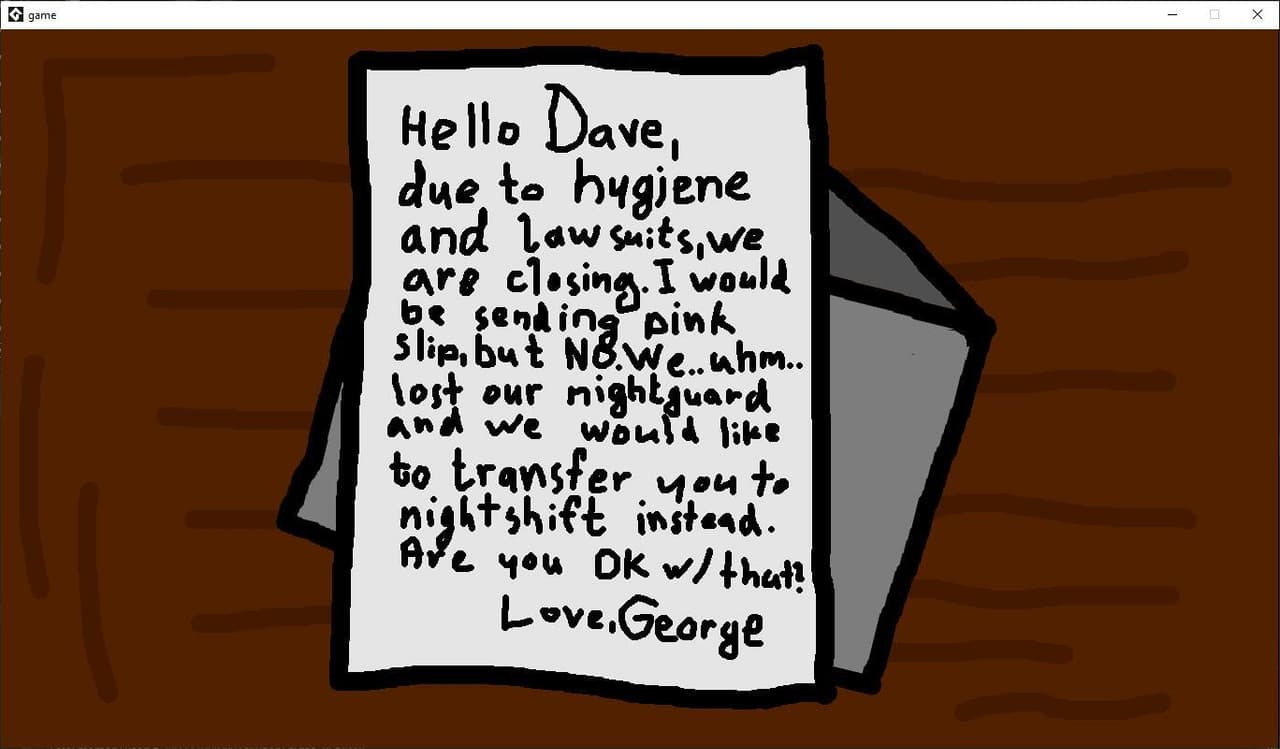 game
Hello Dave,
due to hygiene
and lawsuits, we
are closing. I would
be sending pink
slip, but NO. We.. uhm..
lost our nightguard
and we would like
to transfer you to
nightshift instead.
Are you OK w/ that?
Love, George